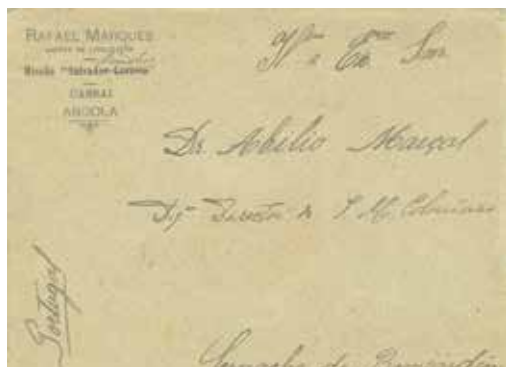 RAFAEL MARQUES
Missão "Salvador Correia"
CABBAL
ANGOLA
Illmo e Exmo Snr.
Dr. Abilio Marçal
Digº Director das M. Coloniais
Portugal
Sernache do Bomjardim